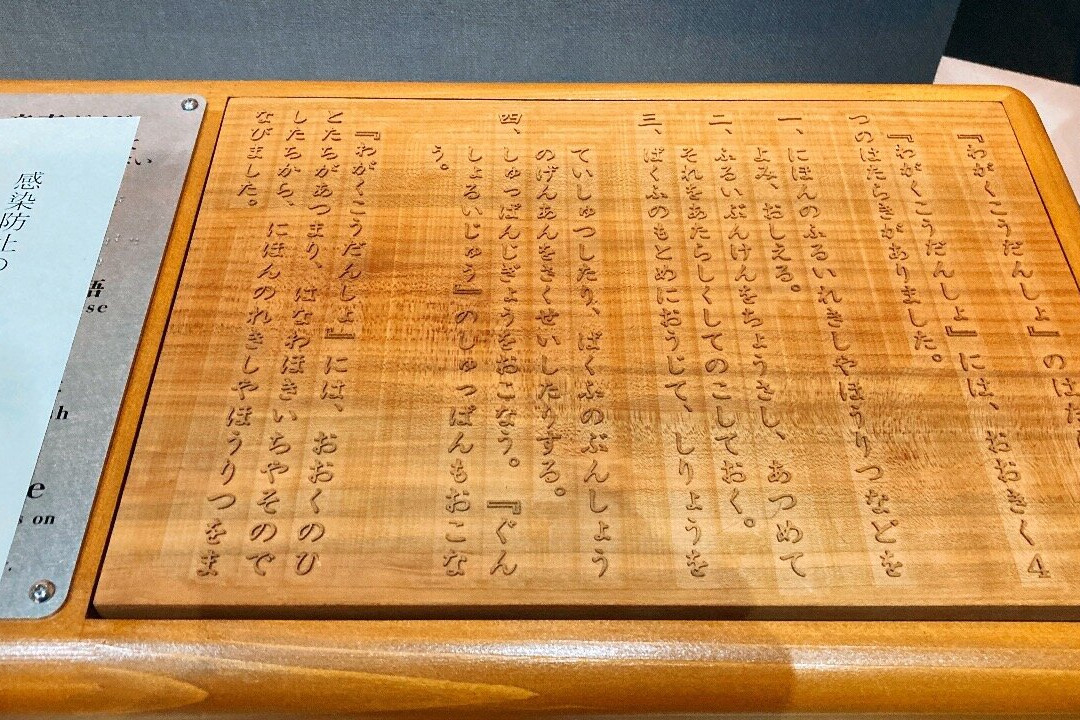 『わがくこうだんしょ』のはた
『わがくこうだんしょ』には、おおきく4
つのはたらきがありました。
一、にほんのふるいれきしやほうりつなどを
よみ、おしえる。
二、ふるいぶんけんをちょうさし、あつめて
それをあたらしくしてのこしておく。
三、ばくふのもとめにおうじて、しりょうを
ていしゅつしたり、ばくふのぶんしょう
のげんあんをさくせいしたりする。
四、しゅっぱんじぎょうをおこなう。『ぐん
しょるいじゅう』のしゅっぱんもおこな
う。
『わがくこうだんしょ』には、おおくのひ
とたちがあつまり、はなわほきいちやそので
したちから、にほんのれきしやほうりつをま
なびました。
感染防止の
語
se
h
e
s on